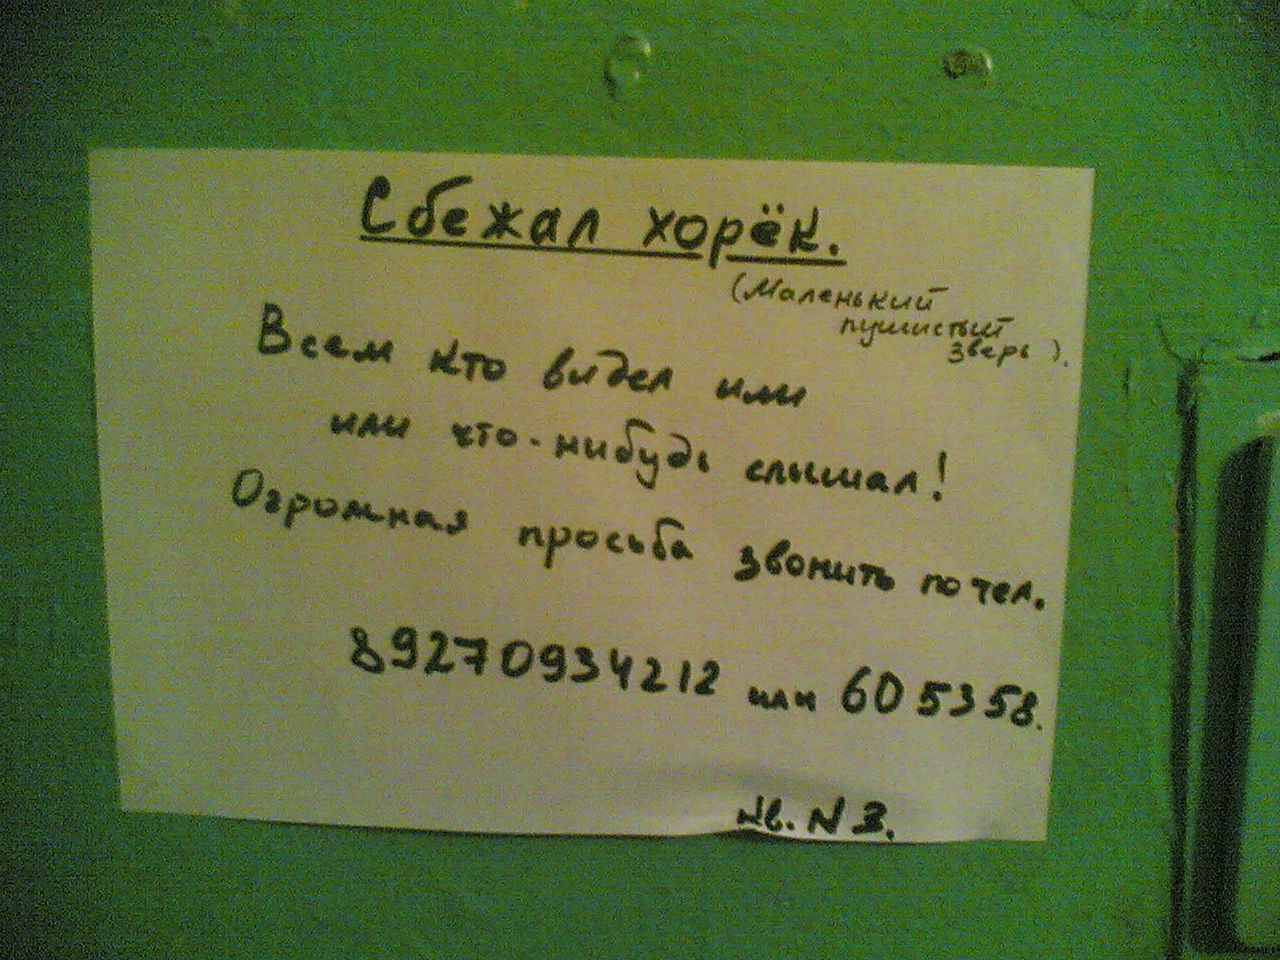 Сбежал хорёк.
(Маленький
пушистый
зверь).
Всем кто видел или
или что-нибудь слышал!
Огромная просьба звонить по тел.
89270934212 или 605358.
кв. N 3.